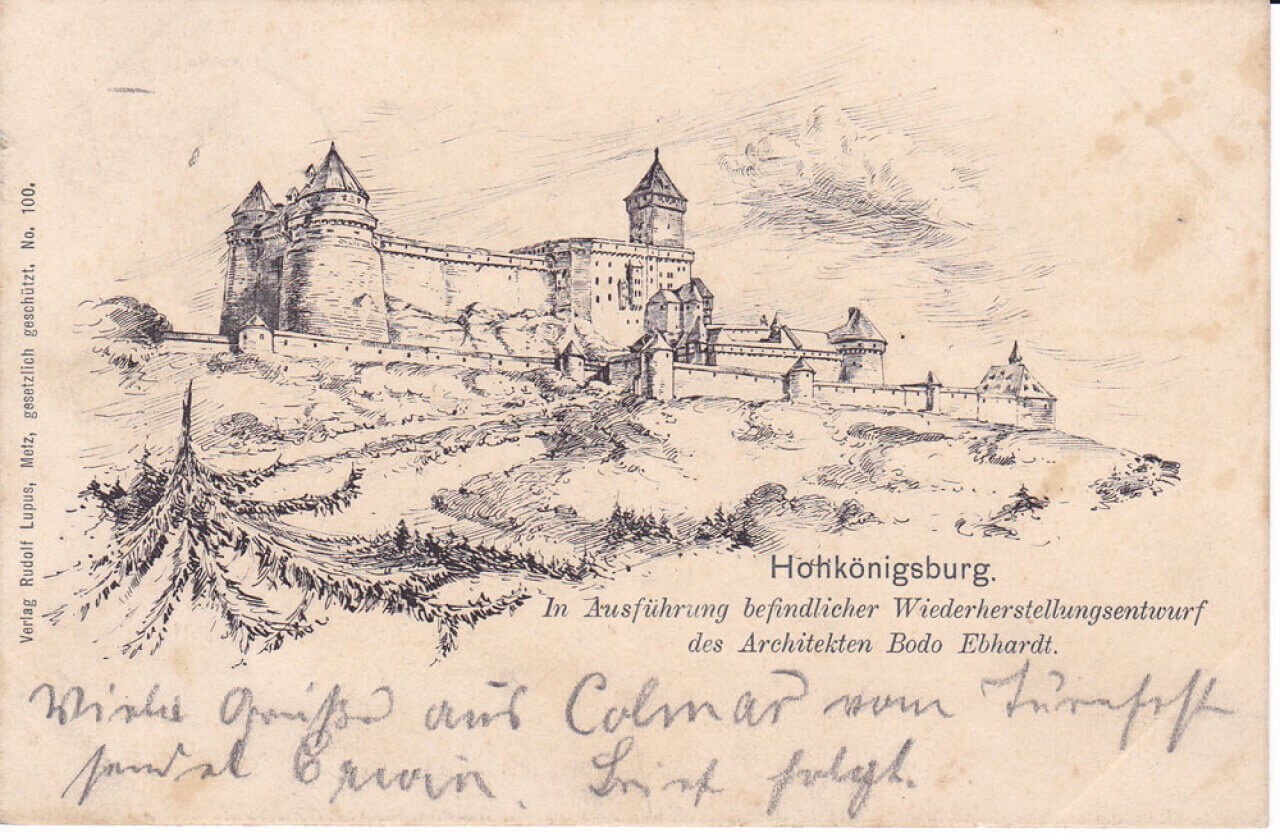 Verlag Rudolf Lupus, Metz, gesetzlich geschützt. No. 100.
Hohkönigsburg.
In Ausführung befindlicher Wiederherstellungsentwurf
des Architekten Bodo Ebhardt.
Viele Grüße aus Colmar vom Turnfest
sendet Erwin. Brief folgt.